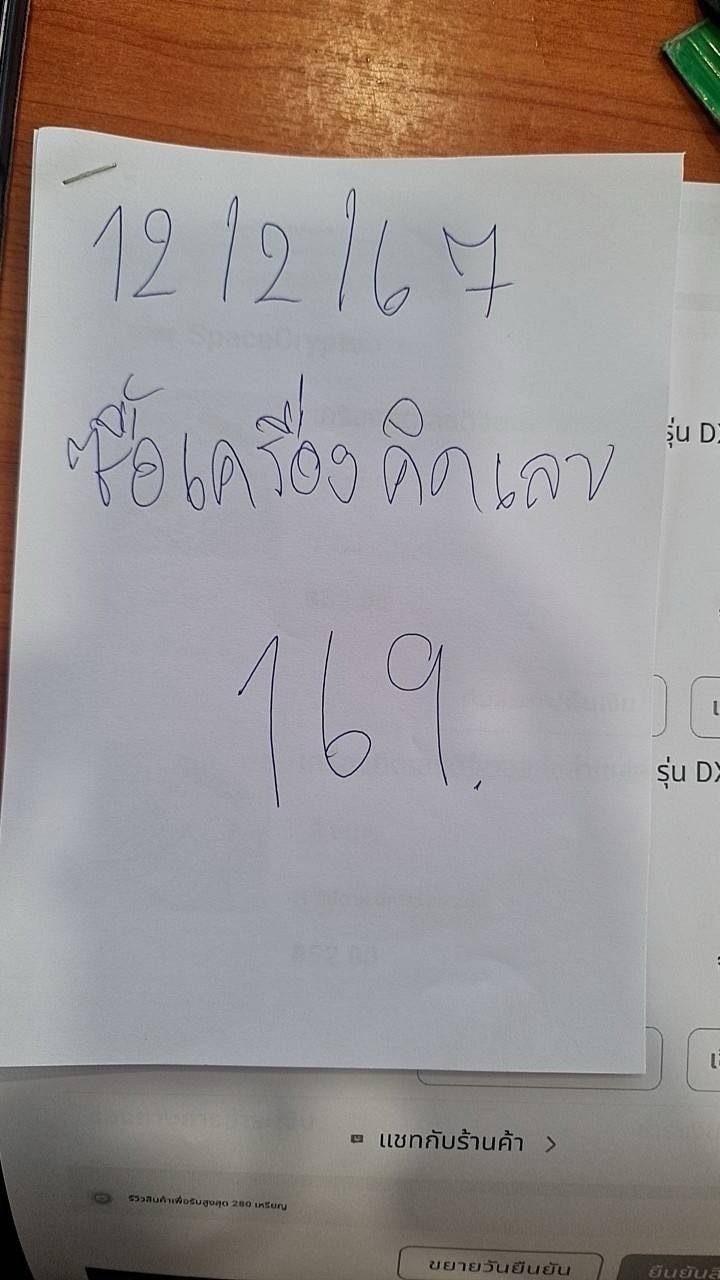 12/2/67
ซื้อเครื่องคิดเลข
169.
รุ่น DX
รุ่น DX
แชทกับร้านค้า >
รีวิวสินค้าเพื่อรับสูงสุด 280 เหรียญ
ขยายวันยืนยัน